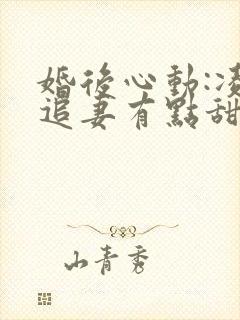 婚後心動:凌
追妻有點甜
山青秀